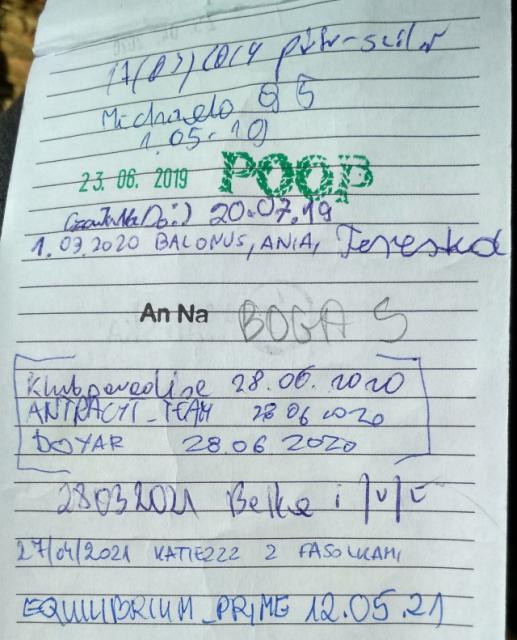 17/03/2019
Michaelo G5
1.05.19
23. 06. 2019 POOP
20.07.19
1.03.2020 BALONUS, ANIA, Tereska
An Na BOGA S
Klubparadise 28.06.2020
ANTRACYT_TEAM 28 06 2020
DOYAR 28.06 2020
28032021 Belka i
27/04/2021 KATIEZZZ Z FASOLKAMI
EQUILIBRIUM_PRIME 12.05.21